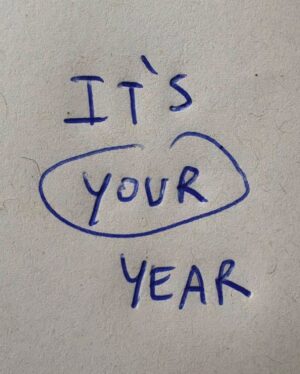 IT'S
YOUR
YEAR